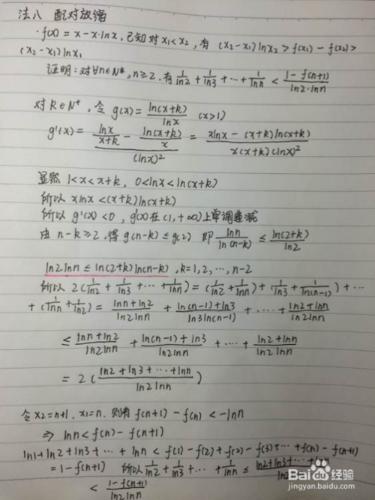 法八 配对放缩
· f(x) = x - x·lnx, 已知对 x₁<x₂, 有 (x₂-x₁)lnx₂ > f(x₁)-f(x₂) >
(x₂-x₁)lnx₁
证明: 对∀n∈N*, n≥2. 有 1/ln2 + 1/ln3 + ··· + 1/lnn < (1-f(n+1))/(ln2·lnn)
对 k∈N*, 令 g(x) = ln(x+k)/lnx (x>1)
g'(x) = (lnx/(x+k) - ln(x+k)/x)/(lnx)² = (xlnx-(x+k)ln(x+k))/(x(x+k)(lnx)²)
显然 1<x<x+k, 0<lnx<ln(x+k)
所以 xlnx<(x+k)ln(x+k)
所以 g'(x)<0, g(x)在(1,+∞)上单调递减
由 n-k≥2, 得 g(n-k)≤g(2) 即 lnn/ln(n-k) ≤ ln(2+k)/ln2
ln2lnn ≤ ln(2+k)ln(n-k), k=1,2,···,n-2
所以 2(1/ln2 + 1/ln3 + ··· + 1/lnn) = (1/ln2 + 1/lnn) + (1/ln3 + 1/ln(n-1)) + ···
+ (1/lnn + 1/ln2) = (lnn+ln2)/(ln2lnn) + (ln(n-1)+ln3)/(ln3ln(n-1)) + ··· + (ln2+lnn)/(ln2lnn)
≤ (lnn+ln2)/(ln2lnn) + (ln(n-1)+ln3)/(ln2lnn) + ··· + (ln2+lnn)/(ln2lnn)
= 2((ln2+ln3+···+lnn)/(ln2lnn))
令 x₂=n+1, x₁=n. 则有 f(n+1)-f(n) < -lnn
⇒ lnn<f(n)-f(n+1)
ln1+ln2+ln3+···+lnn < f(1)-f(2)+f(2)-f(3)+···+f(n)-f(n+1)
=1-f(n+1) 所以 1/ln2 + 1/ln3 + ··· + 1/lnn ≤ (ln2+ln3+···
< (1-f(n+1))/(ln2lnn)
Baidu经验
jingyan.baidu.com